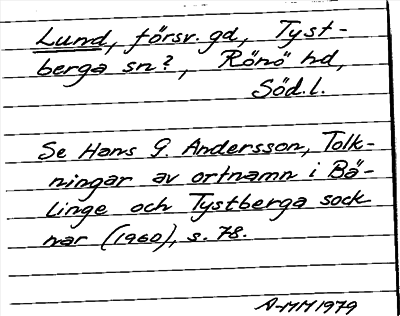 Lund, försv. gd, Tyst-
berga sn?, Rönö hd,
Söd.l.
Se Hans G. Andersson, Tolk-
ningar av ortnamn i Bä-
linge och Tystberga sock
nar (1960), s. 78.
A-MM 1979